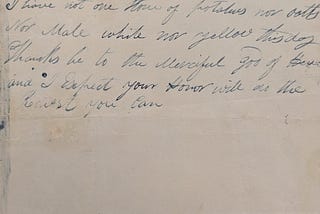 I have not one stone of potatoes nor oatts
Nor Male white nor yellow this day
Thanks be to the Merciful God of
and I Expect your Honor will do the
you Can